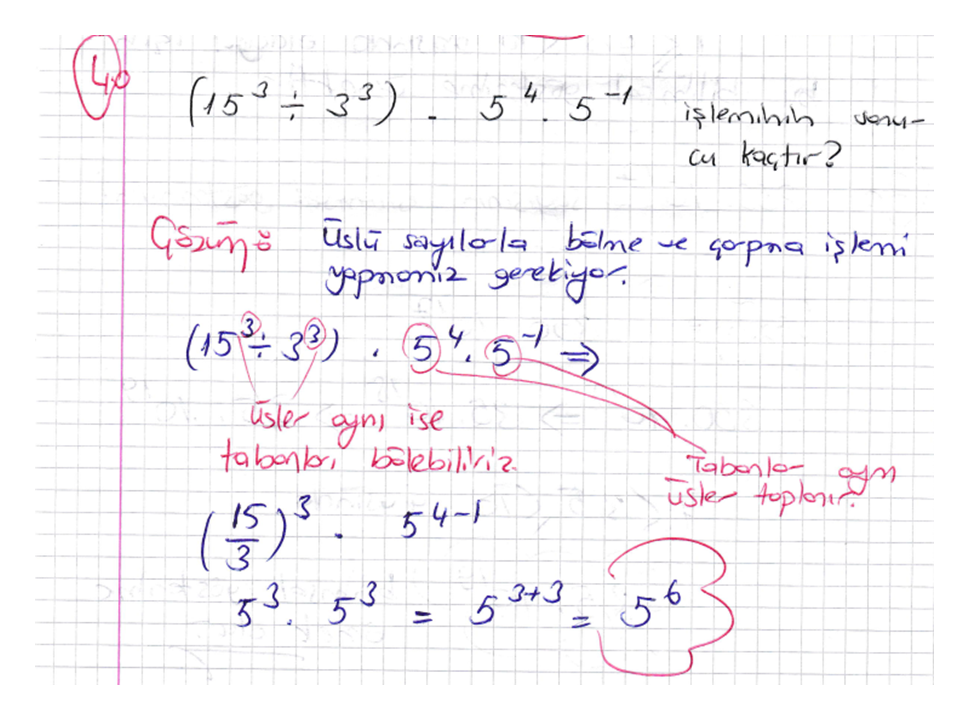 40
(15³ ÷ 3³) . 5⁴ . 5⁻¹ işleminin sonu-
cu kaçtır?
Çözüm: Üslü sayılarla bölme ve çarpma işlemi
yapmamız gerekiyor.
(15³ ÷ 3³) . 5⁴ . 5⁻¹ ⇒
üsler aynı ise
tabanları bölebiliriz.
Tabanlar aynı
üsler toplanır.
(15/3)³ . 5⁴⁻¹
5³ . 5³ = 5³⁺³ = 5⁶